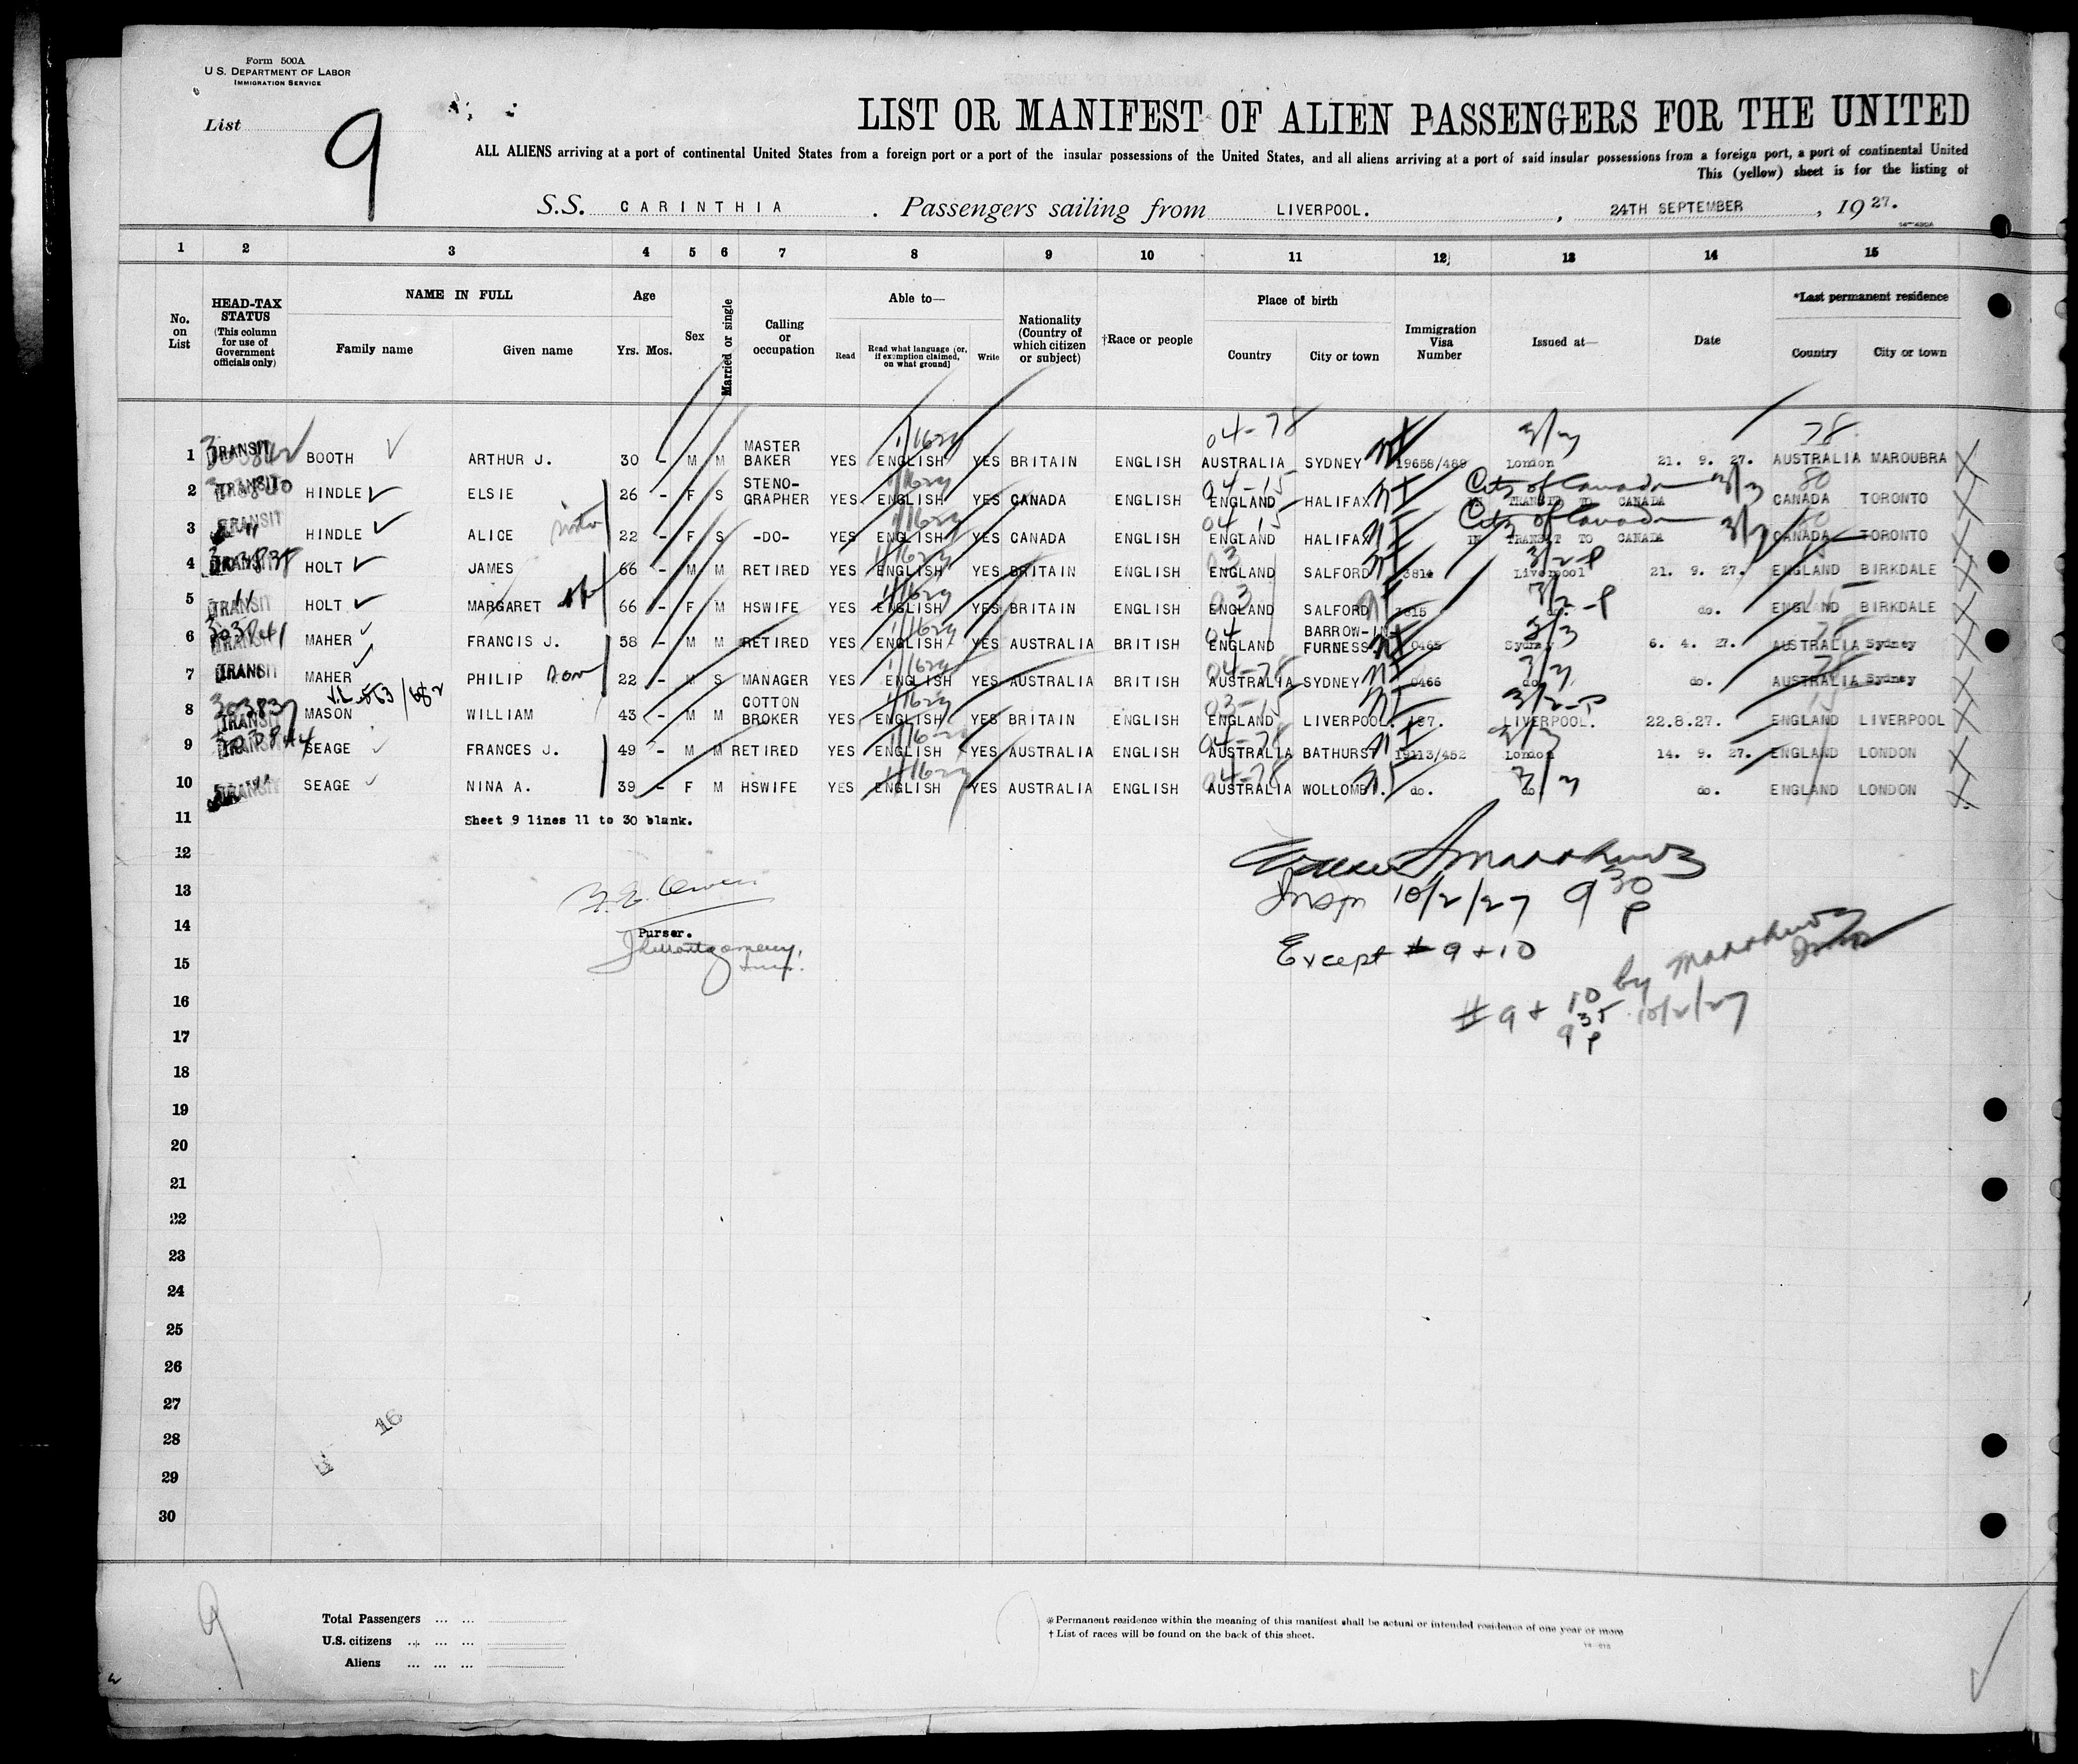 Form 500A
U.S. DEPARTMENT OF LABOR
IMMIGRATION SERVICE
List 9
LIST OR MANIFEST OF ALIEN PASSENGERS FOR THE UNITED
ALL ALIENS arriving at a port of continental United States from a foreign port or a port of the insular possessions of the United States, and all aliens arriving at a port of said insular possessions from a foreign port, a port of continental United
This (yellow) sheet is for the listing of
S.S. CARINTHIA . Passengers sailing from LIVERPOOL. , 24TH SEPTEMBER , 1927.
1 2 3 4 5 6 7 8 9 10 11 12 13 14 15
No. on List
HEAD-TAX STATUS (This column for use of Government officials only)
NAME IN FULL
Family name Given name
Age
Yrs. Mos.
Sex
Married or single
Calling or occupation
Able to—
Read Read what language (or, if exemption claimed, on what ground) Write
Nationality (Country of which citizen or subject)
†Race or people
Place of birth
Country City or town
Immigration Visa Number
Issued at—
Date
*Last permanent residence
Country City or town
1 TRANSIT BOOTH ARTHUR J. 30 - M M MASTER BAKER YES ENGLISH YES BRITAIN ENGLISH 04-78 AUSTRALIA SYDNEY 19658/489 London 21. 9. 27. 78 AUSTRALIA MAROUBRA
2 TRANSIT HINDLE ELSIE 26 - F S STENO-GRAPHER YES ENGLISH YES CANADA ENGLISH 04-15 ENGLAND HALIFAX City of Canada IN TRANSIT TO CANADA 80 CANADA TORONTO
3 TRANSIT HINDLE ALICE sister 22 - F S -DO- YES ENGLISH YES CANADA ENGLISH 04-15 ENGLAND HALIFAX City of Canada IN TRANSIT TO CANADA CANADA TORONTO
4 TRANSIT HOLT JAMES 66 - M M RETIRED YES ENGLISH YES BRITAIN ENGLISH 03 ENGLAND SALFORD Liverpool 21. 9. 27. ENGLAND BIRKDALE
5 TRANSIT HOLT MARGARET 66 - F M HSWIFE YES ENGLISH YES BRITAIN ENGLISH 03 ENGLAND SALFORD do. do. ENGLAND BIRKDALE
6 303841 TRANSIT MAHER FRANCIS J. 58 - M M RETIRED YES ENGLISH YES AUSTRALIA BRITISH 04 ENGLAND BARROW-IN FURNESS 0465 Sydney 6. 4. 27. AUSTRALIA Sydney
7 TRANSIT MAHER PHILIP son 22 - M S MANAGER YES ENGLISH YES AUSTRALIA BRITISH 04-78 AUSTRALIA SYDNEY 0466 do. do. AUSTRALIA Sydney
8 TRANSIT MASON WILLIAM 43 - M M COTTON BROKER YES ENGLISH YES BRITAIN ENGLISH 03-15 ENGLAND LIVERPOOL. LIVERPOOL. 22.8.27. ENGLAND LIVERPOOL
9 TRANSIT SEAGE FRANCES J. 49 - M M RETIRED YES ENGLISH YES AUSTRALIA ENGLISH 04-78 AUSTRALIA BATHURST 19113/452 London 14. 9. 27. ENGLAND LONDON
10 TRANSIT SEAGE NINA A. 39 - F M HSWIFE YES ENGLISH YES AUSTRALIA ENGLISH 04-78 AUSTRALIA WOLLOMBI. do. do. do. ENGLAND LONDON
11 Sheet 9 lines 11 to 30 blank.
12
13
Insp 10/2/27 9 30 P
14 Purser.
Except # 9 + 10
15
16
# 9 + 10 by 10/2/27
9 35 P
17
18
19
20
21
22
23
24
25
26
27
16
28
29
30
9
Total Passengers ... ...
U.S. citizens ... ... ...
Aliens ... ... ...
*Permanent residence within the meaning of this manifest shall be actual or intended residence of one year or more
† List of races will be found on the back of this sheet.